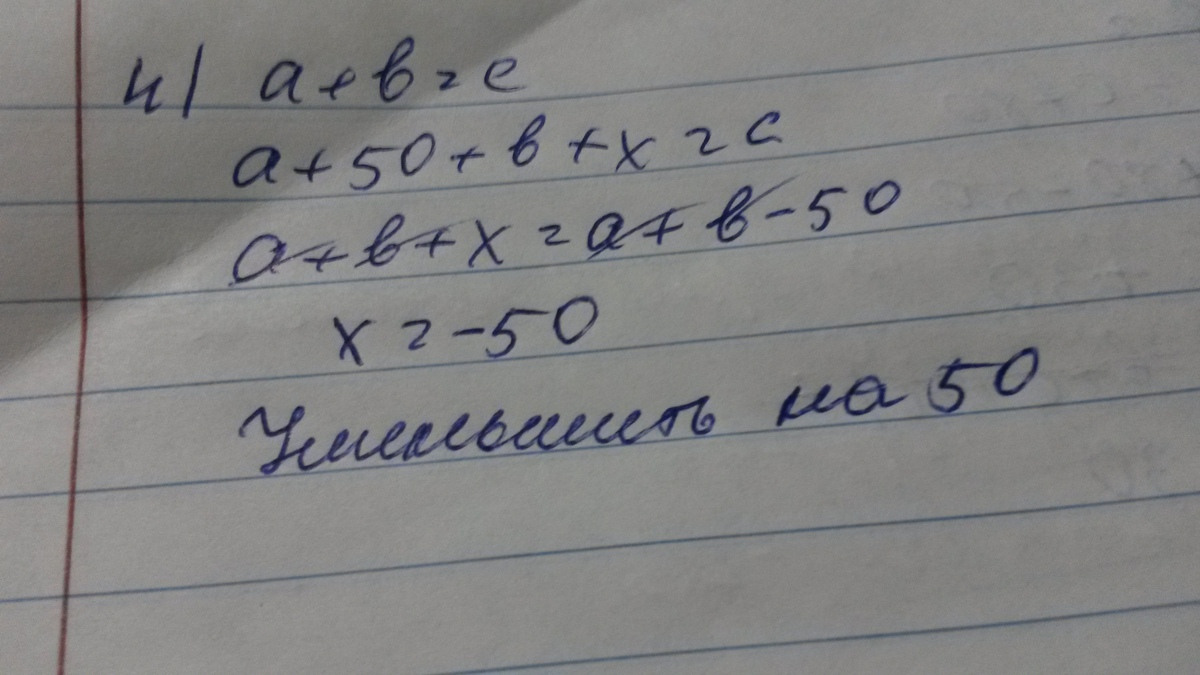 4) a + b = c
a + 50 + b + x = c
a + b + x = a + b - 50
x = -50
Уменьшить на 50